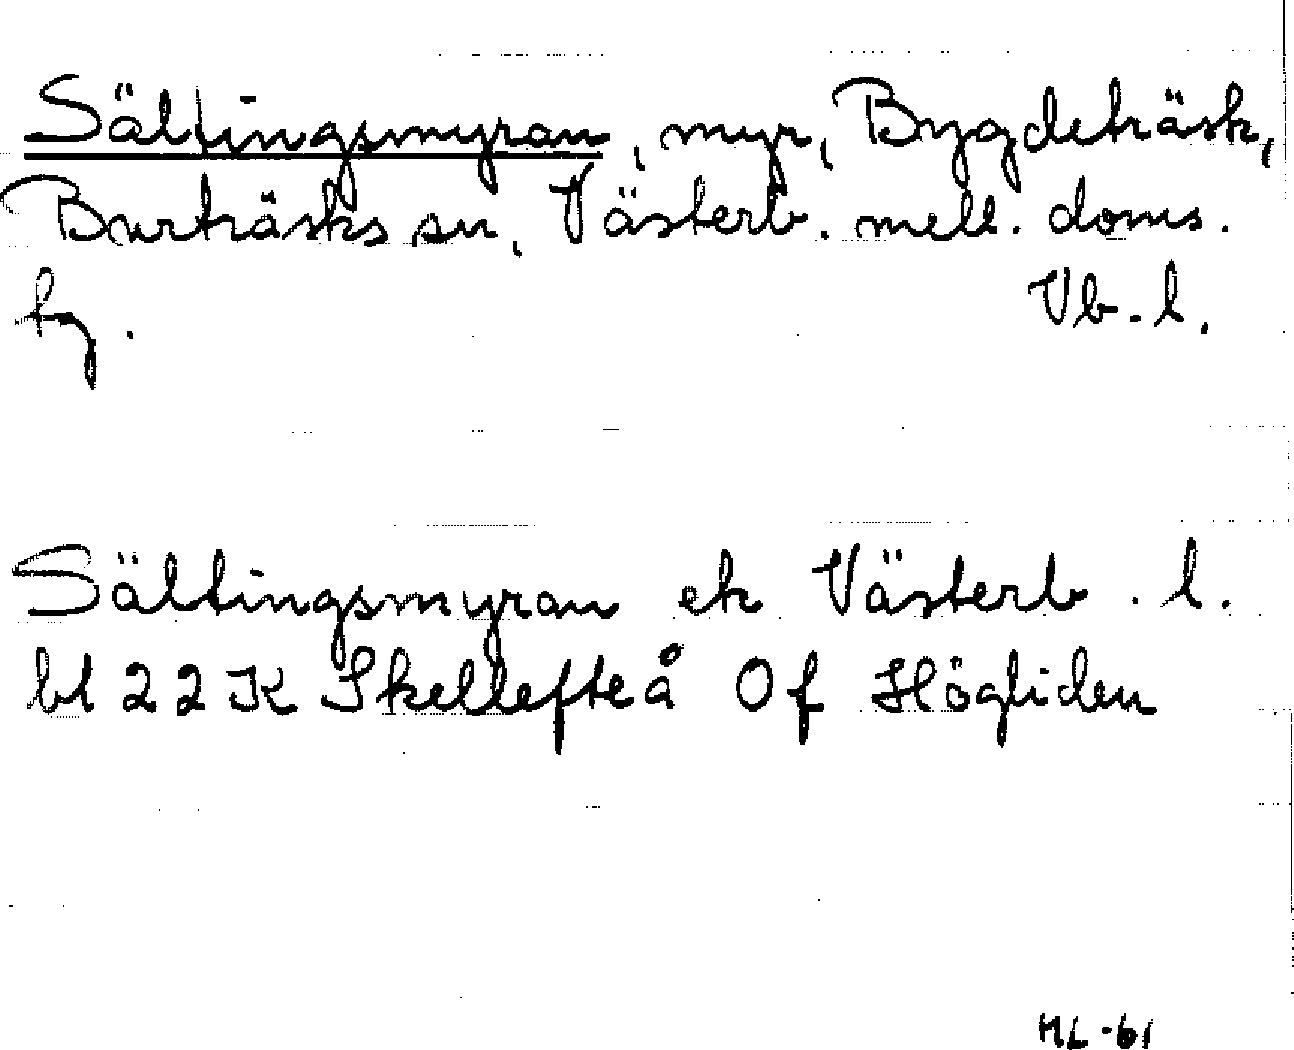 Sältingsmyran, myr, Bygdeträsk,
Burträsks sn, Västerb. mell. doms.
fg. Vb. l.
Sältingsmyran ek Västerb. l.
bl 22K Skellefteå Of Högliden
HL-61